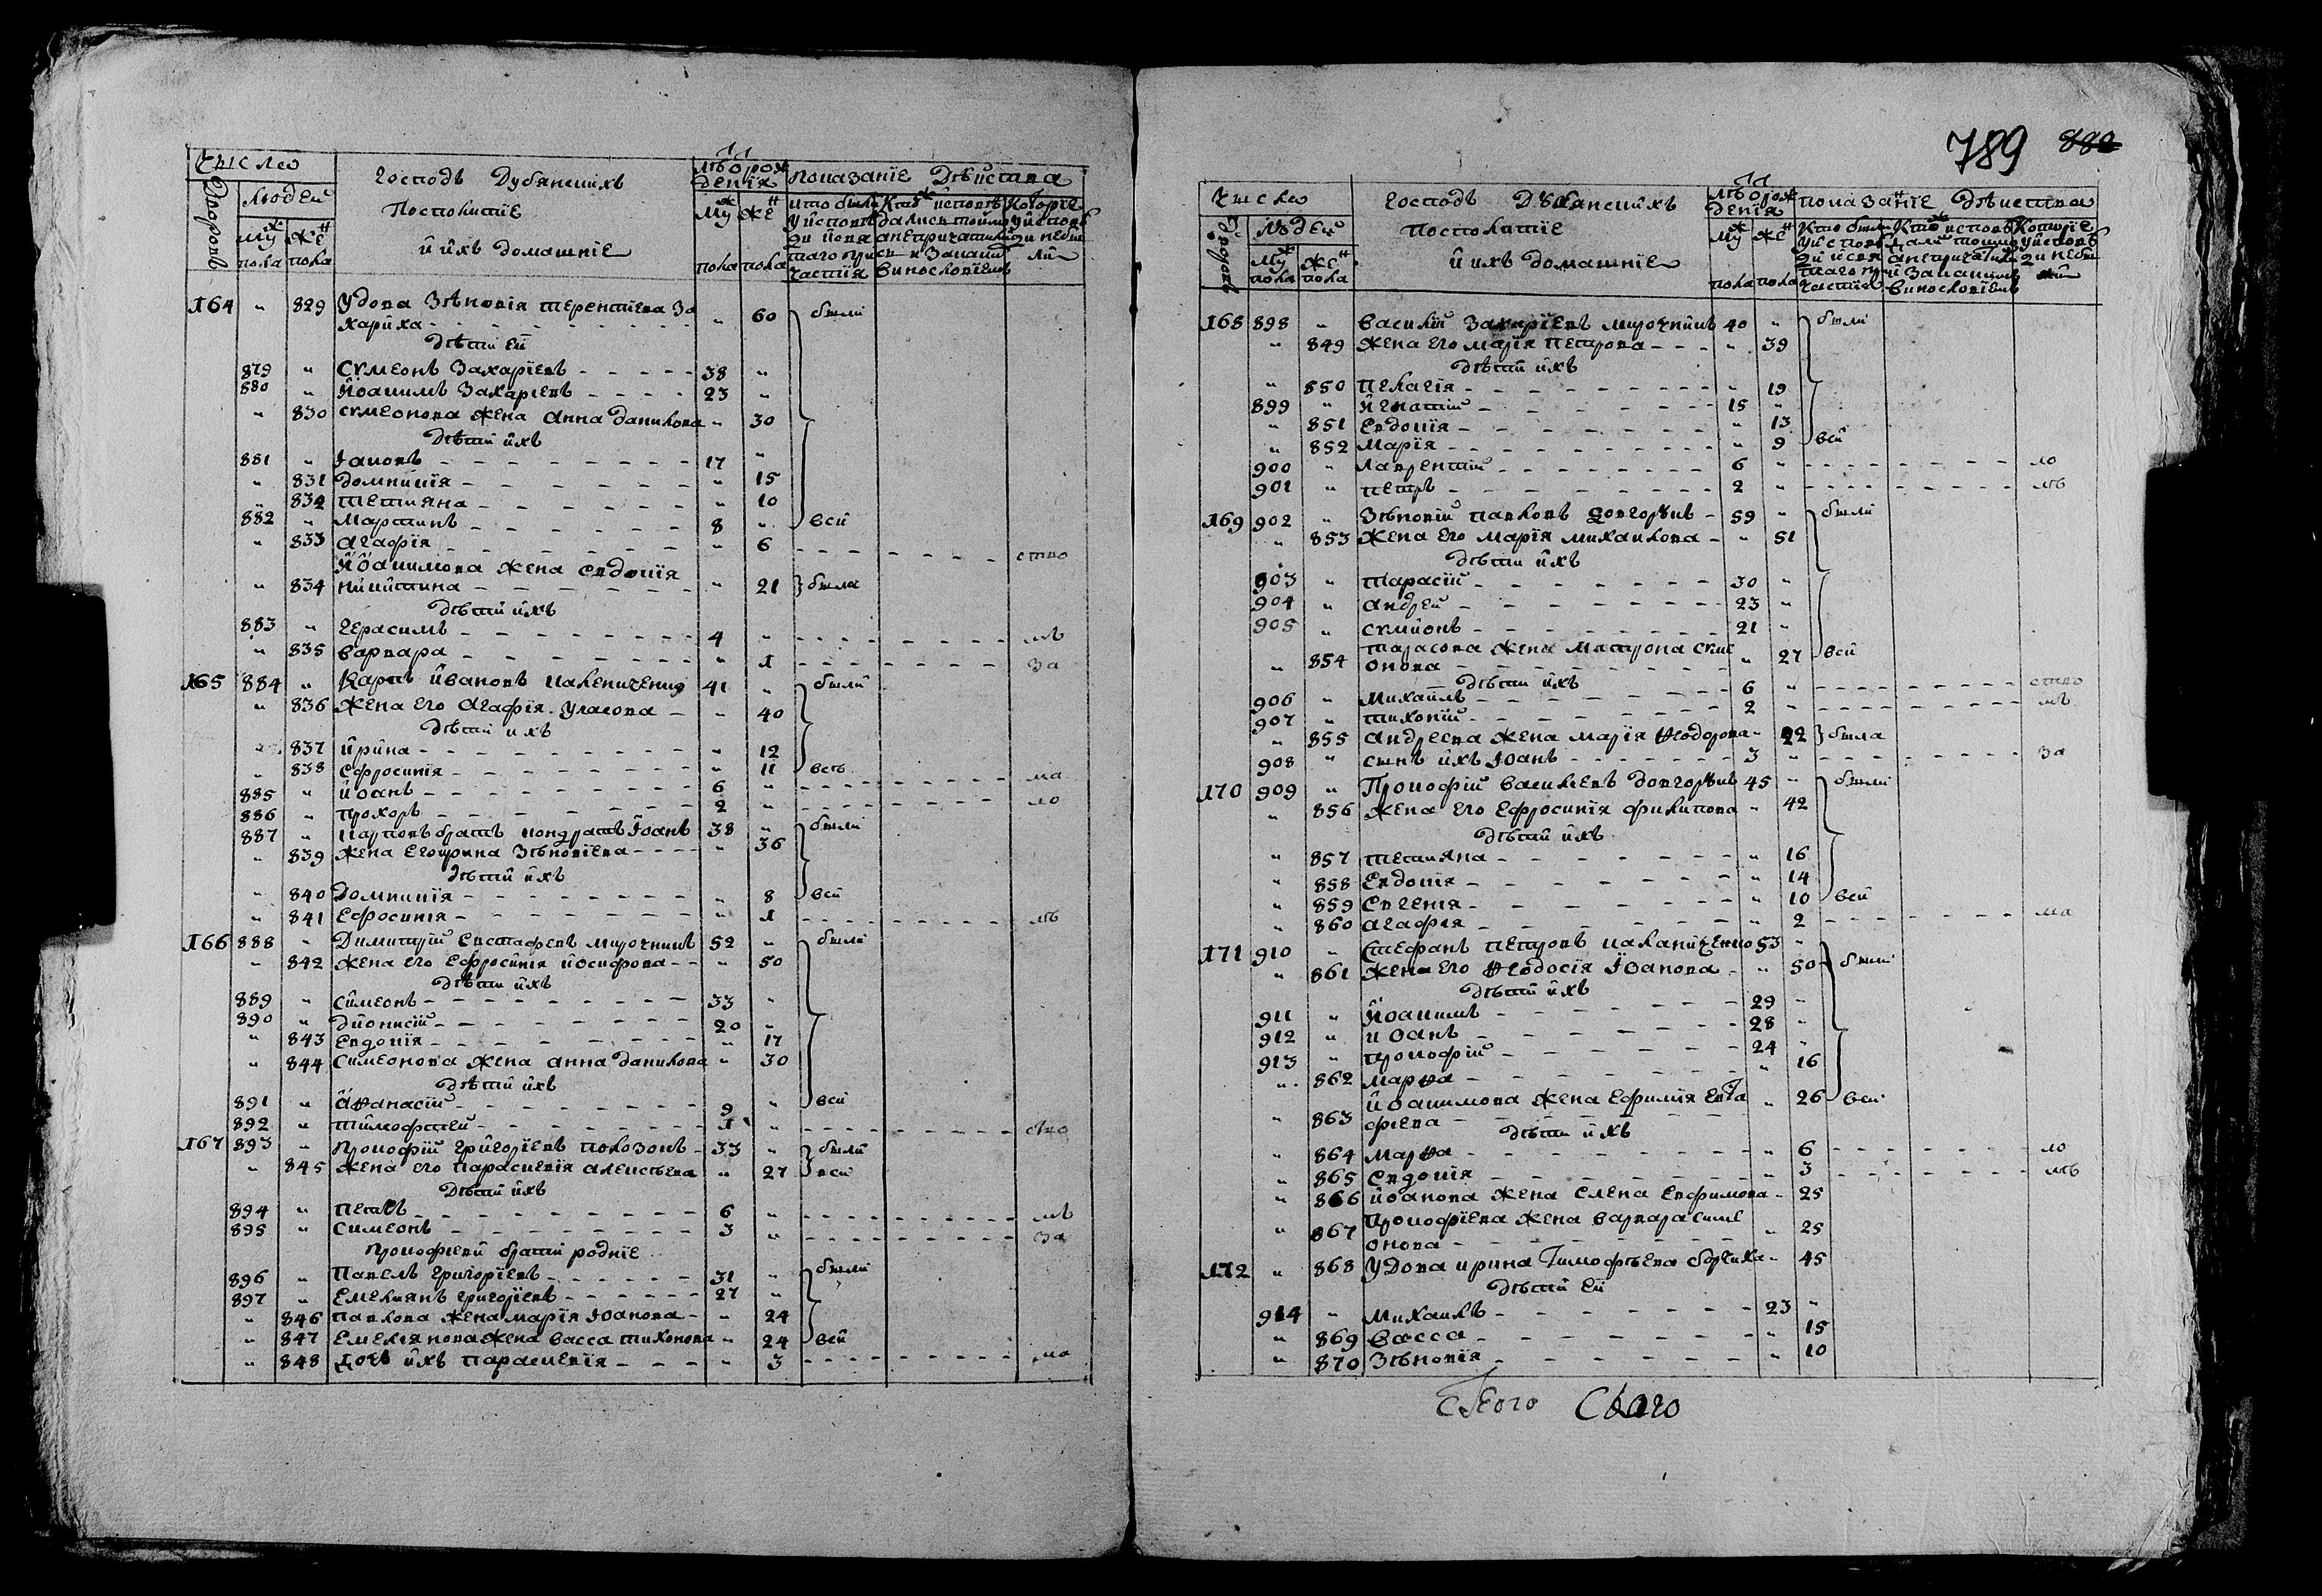 Число
Господъ Дубянскихъ
Посполитие
и ихъ домашние
лѣ ѿ рож
дения
показание дѣйства
Дворовъ
людей
Му
пола
Же
пола
164 " 829 Удова Зѣновия Терентиева За
хариха - " 60 были
Дѣти ей
879 " Сѵмеонъ Захариевъ - 38 "
880 " Иоакимъ Захариевъ - 23 "
" 830 Сѵмеонова жена Анна Данилова " 30
Дѣти ихъ
881 " Іаковъ - 17 "
" 831 Домникия - " 15
" 832 Тетияна - " 10
882 " Мартинъ - 8 " вси
" 833 Агафия - " 6 - ство
Иоакимова жена Евдокия
" 834 Никитина - " 21 была
Дѣти ихъ
883 " Герасимъ - 4 " - лѣ
" 835 Варвара - " 1 - за
165 884 " Карпъ Ивановъ Калениченко 41 " были
" 836 Жена его Агафия Уласова - " 40
Дѣти ихъ
" 837 Ирина - " 12
" 838 Ефросиния - " 11 всѣ
885 " Иоанъ - 6 " - ма
886 " Прохоръ - 2 " - ло
887 " Карповъ братъ Кондратъ Іоанъ 38 " были
" 839 Жена Екатрина Зѣновиева - " 36
Дѣти ихъ
" 840 Домникия - " 8 вси
" 841 Ефросиния - " 1 - лѣ
166 888 " Димитрий Евстафиевъ Мирочникъ 52 " были
" 842 Жена его Ефросиния Иосифова - " 50
Дѣти ихъ
889 " Симеонъ - 33 "
890 " Дионисий - 20 "
" 843 Евдокия - " 17
" 844 Симеонова жена Анна Данилова " 30
Дѣти ихъ
891 " Аѳанасий - 9 " вси
892 " Тимофтей - 1 " - ство
167 893 " Прокофий Григориевъ Полозокъ - 33 " были
" 845 Жена его Параскевия Алексѣева " 27 вси
Дѣти ихъ
894 " Петръ - 6 " - лѣ
895 " Симеонъ - 3 " - за
Прокофиеви брати родние
896 " Павелъ Григориевъ - 31 " были
897 " Емелиянъ Григориевъ - 27 "
" 846 Павлова жена Мария Іоанова - " 24
" 847 Емелиянова жена Васса Тихонова " 24 вси
" 848 Дочь ихъ Параскевия - " 3 - ма
789 882
Число
Господъ Дубянскихъ
Посполитие
и ихъ домашние
лѣ ѿ рож
дения
показание дѣйства
Дворовъ
людей
Му
пола
Же
пола
168 898 " Василий Захариевъ Мирочникъ 40 " были
" 849 Жена его Мария Петрова - " 39
Дѣти ихъ
" 850 Пелагия - " 19
899 " Игнатий - 15 "
" 851 Евдокия - " 13
" 852 Мария - " 9 вси
900 " Лаврентий - 6 " - ло
901 " Петръ - 2 " - лѣ
169 902 " Зѣновий Павловъ Довгорукъ - 59 " были
" 853 Жена его Мария Михаилова - " 51
Дѣти ихъ
903 " Тарасий - 30 "
904 " Андрей - 23 "
905 " Сѵмионъ - 21 "
Тарасова жена Матрона Сѵме
" 854 онова - " 27 вси
Дѣти ихъ
906 " Михаилъ - 6 " - ство
907 " Тихоний - 2 " - лѣ
" 855 Андреева жена Мария Ѳеодорова " 22 была
908 " Синъ ихъ Іоанъ - 3 " - за
170 909 " Прокофий Василиевъ Довгорукъ 45 " были
" 856 Жена его Ефросиния Филипова " 42
Дѣти ихъ
" 857 Тетияна - " 16
" 858 Евдокия - " 14
" 859 Евгения - " 10 вси
" 860 Агафия - " 2 - ма
171 910 " Стефанъ Петровъ Калениченко 53 "
" 861 Жена его Ѳеодосия Іоанова - " 50 были
Дѣти ихъ
911 " Иоакимъ - 29 "
912 " Иоанъ - 28 "
913 " Прокофий - 24 "
" 862 Марѳа - " 16
Иоакимова жена Ефимия Евста
" 863 фиева - " 26 вси
Дѣти ихъ
" 864 Марѳа - " 6 - ло
" 865 Евдокия - " 3 - лѣ
" 866 Иоанова жена Елена Евфимова - 25
Прокофиева жена Варвара Симе
" 867 онова - " 25
172 " 868 Удова Ирина Тимофѣева - 45
Дѣти ей
914 " Михаилъ - 23 "
" 869 Васса - " 15
" 870 Зѣновия - " 10